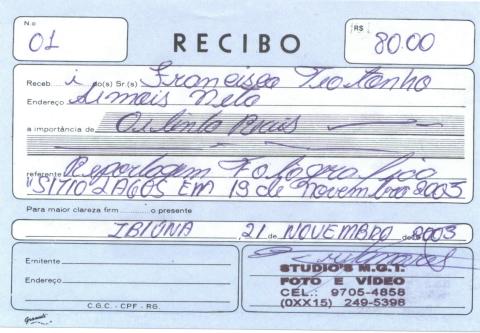 N.o R$
01 RECIBO 80.00
Receb i do(s) Sr.(s) Francisco
Endereço Neto
a importância de Oitenta Reais
referente Reportagem Fotografica
"SITIO LAGOS EM 19 de novembro 2003
Para maior clareza firm o presente
IBIUNA, 21 de NOVEMBRO de 2003
Emitente
Endereço
C.G.C. - CPF - RG.
STUDIO'S M.G.I.
FOTO E VÍDEO
CEL.: 9705-4858
(0XX15) 249-5398